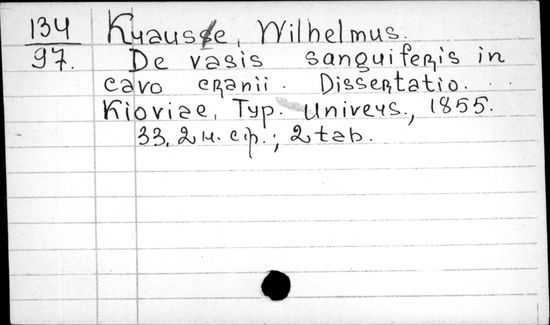 134 Krause, Wilhelmus.
97. De vasis sanguiferis in
cavo cranii. Dissertatio.
Kioviae, Typ. Univers., 1855.
33, 2 н. ср.; 2 tab.